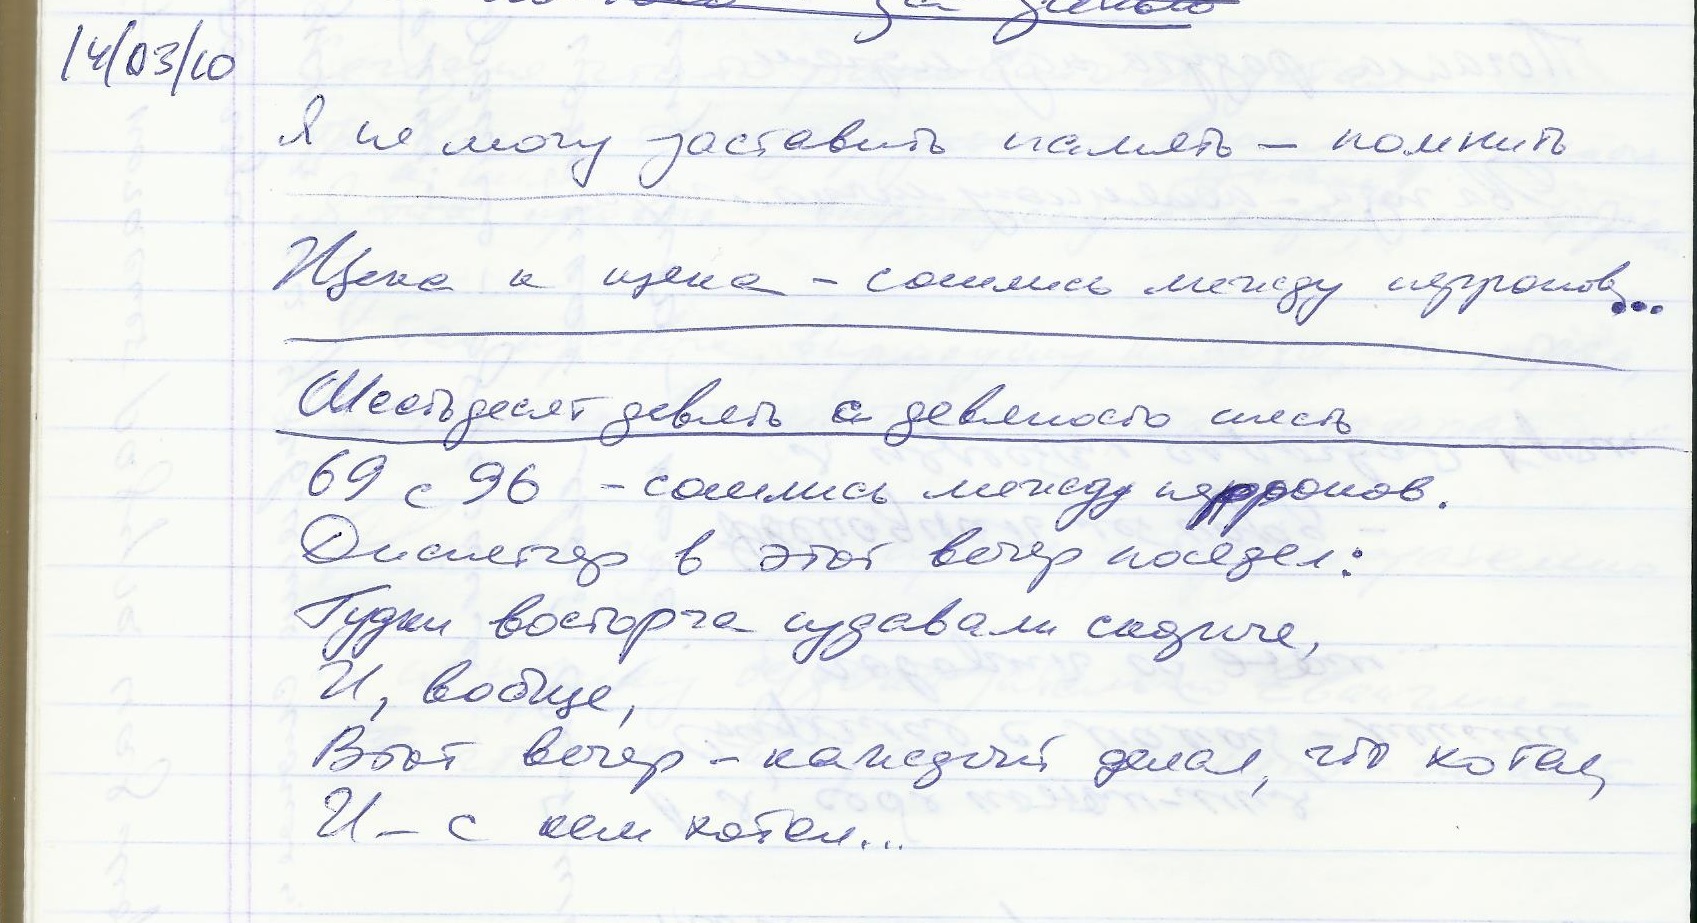 за
14/03/10
Я не могу заставить память – помнить
Щека к щека – сошлись между перронов...
Шестьдесят девять с девяносто шесть
69 с 96 – сошлись между перронов.
Диспетчер в этот вечер поседел:
Гудки восторга издавали
И, вобще,
В этот вечер – каждый делал, что хотел,
И – с кем хотел...